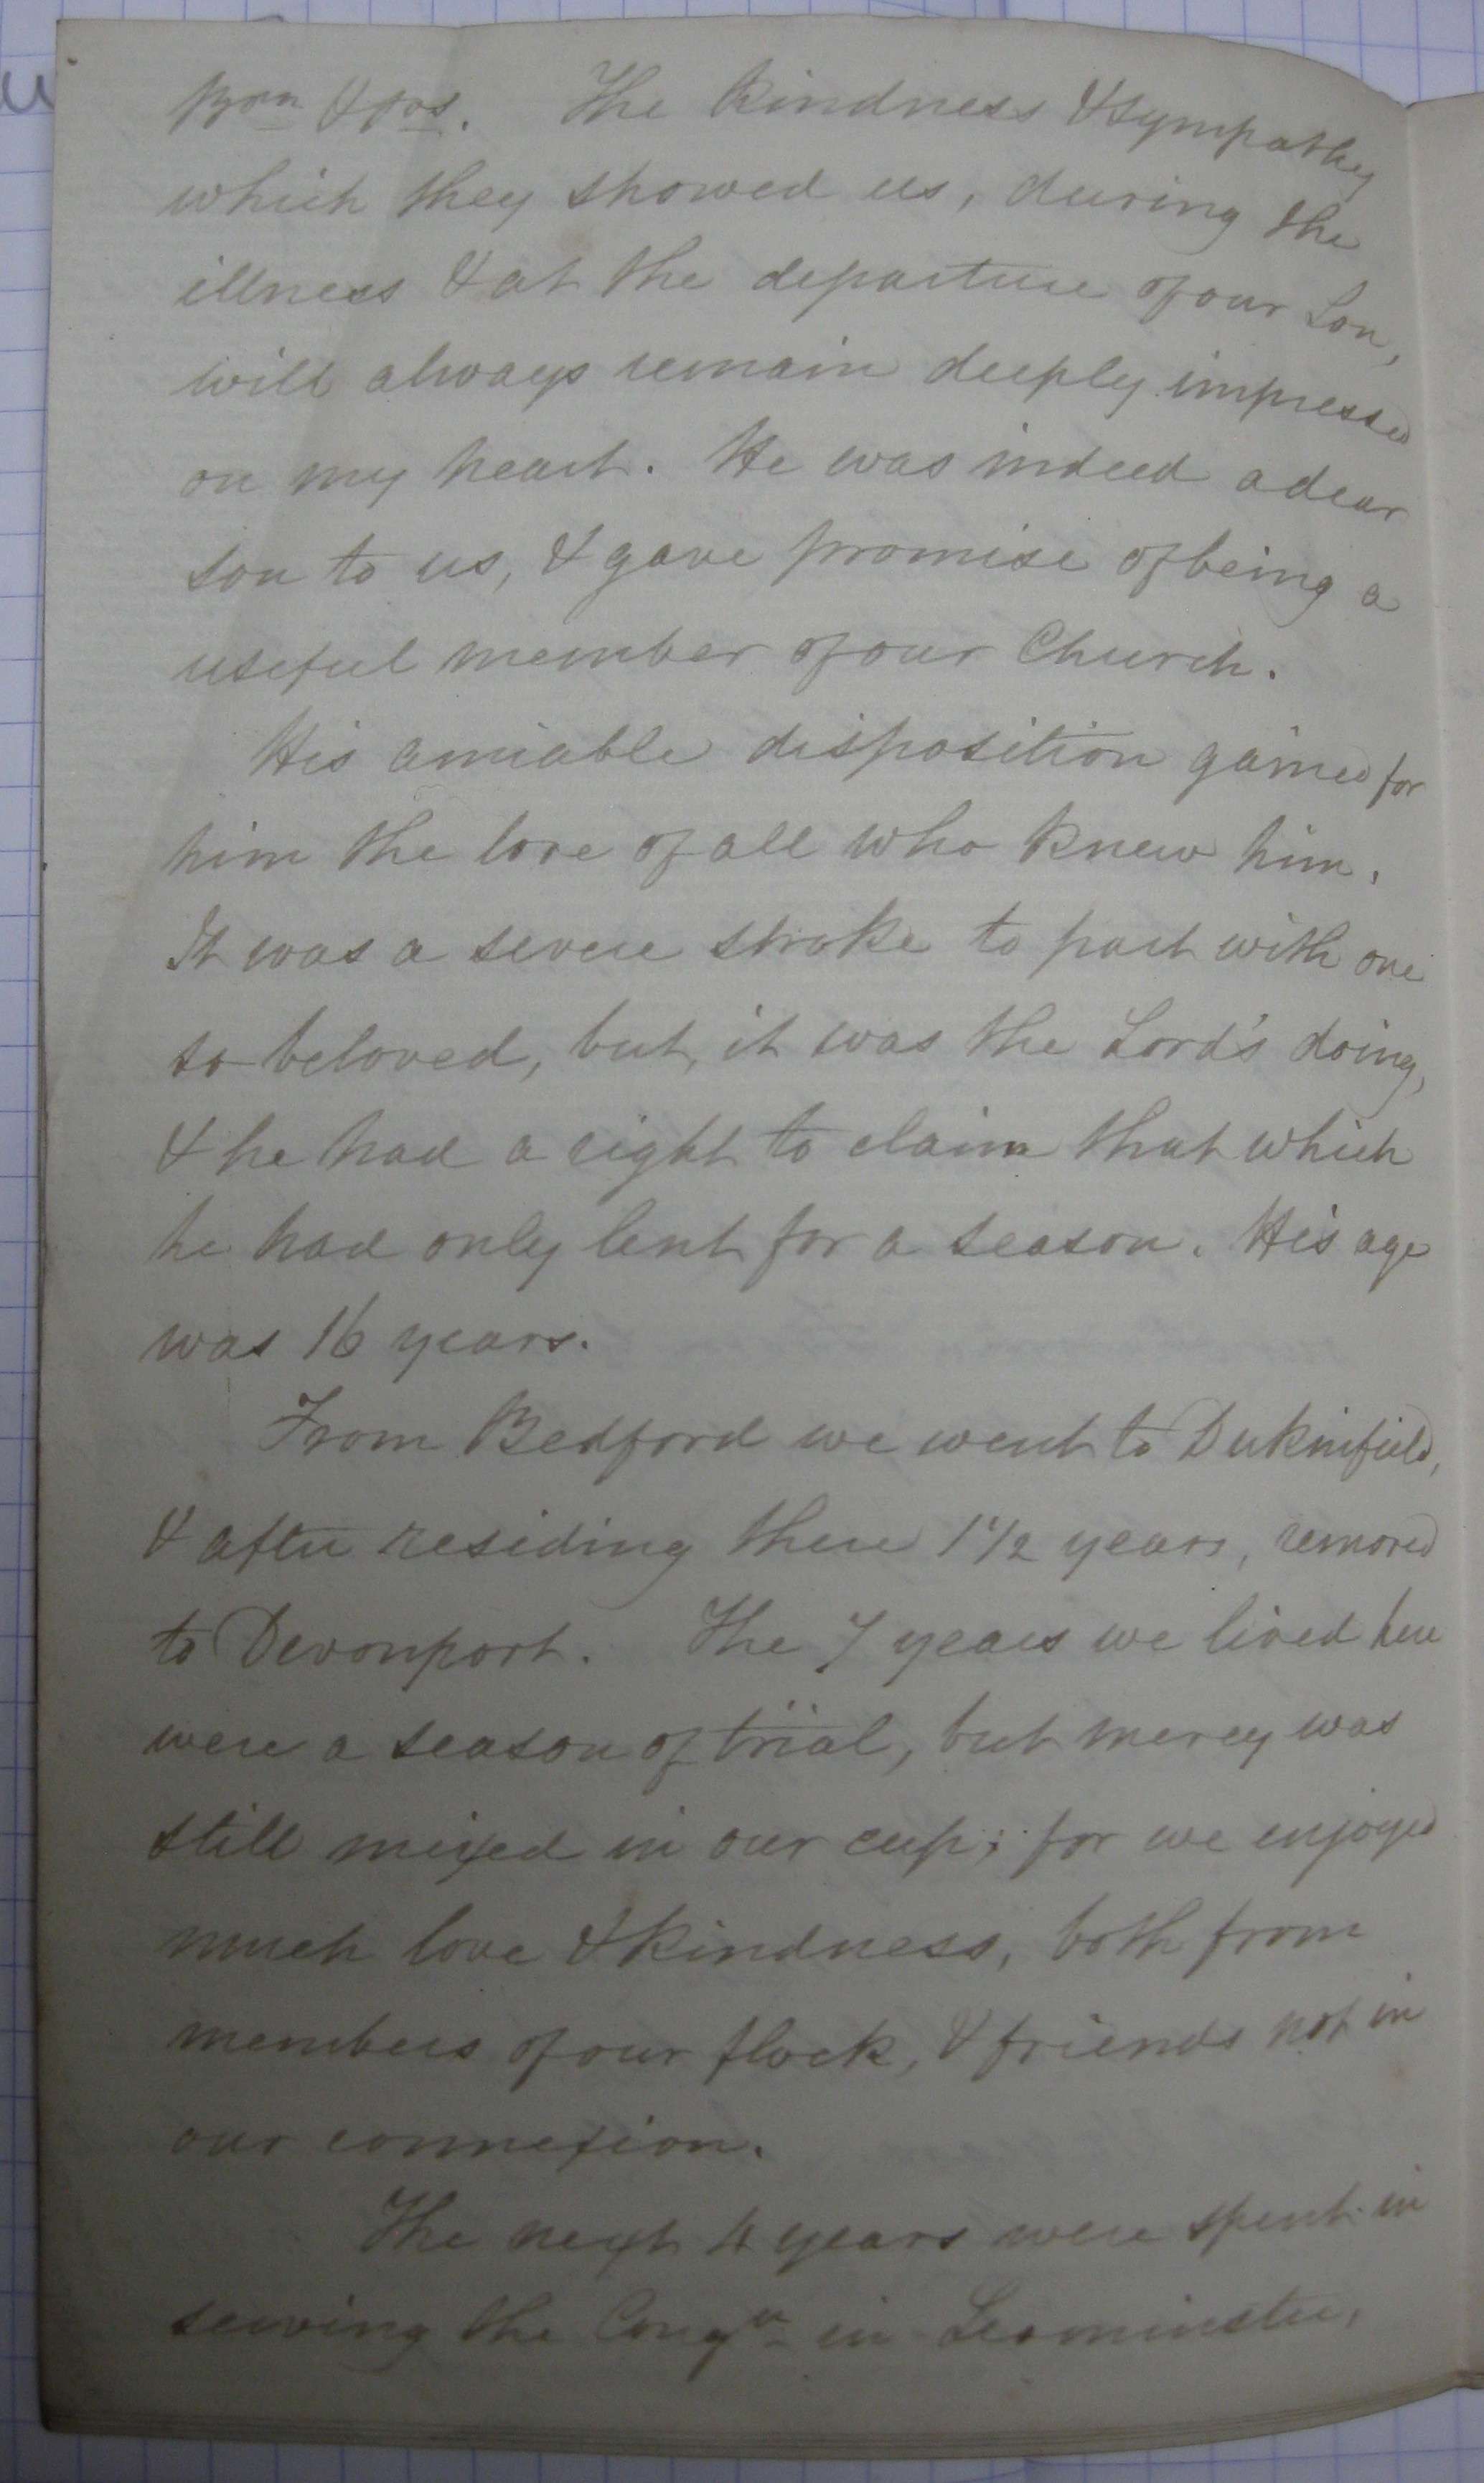 Brn & srs. The kindness & sympathy
which they showed us, during the
illness & at the departure of our Son,
will always remain deeply impressed
on my heart. He was indeed a dear
son to us, & gave promise of being a
useful member of our Church.
His amiable disposition gained for
him the love of all who knew him.
It was a severe stroke to part with one
so beloved, but, it was the Lord's doing,
& he had a right to claim that which
he had only lent for a season. His age
was 16 years.
From Bedford we went to Dukinfield,
& after residing there 1 1/2 years, removed
to Devonport. The 7 years we lived here
were a season of trial, but mercy was
still mixed in our cup; for we enjoyed
much love & kindness, both from
members of our flock, & friends not in
our connexion.
The next 4 years were spent in
serving the Congn in Leominster,